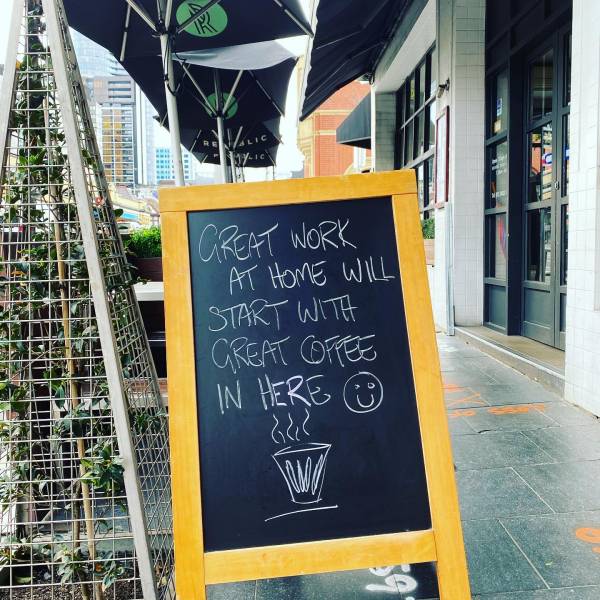 REPUBLIC
GREAT WORK
AT HOME WILL
START WITH
GREAT COFFEE
IN HERE